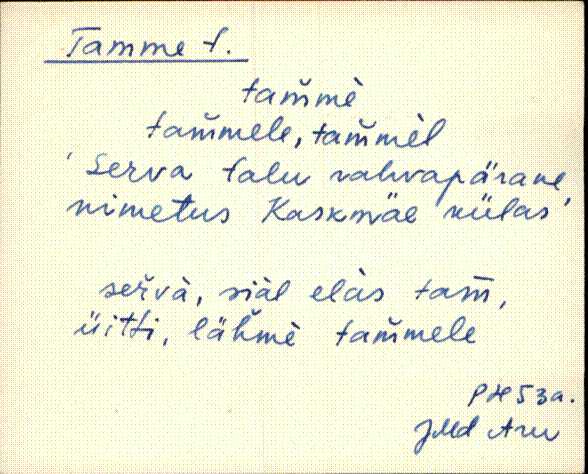 Tamme t.
tam̆mè
tam̆mele, tam̆mèl
'Serva talu rahvapärane
nimetus Kaskmäe külas'
serv̆à, siàl elàs tam̄,
üitti, läh̆mè tam̆mele
PH 53a.